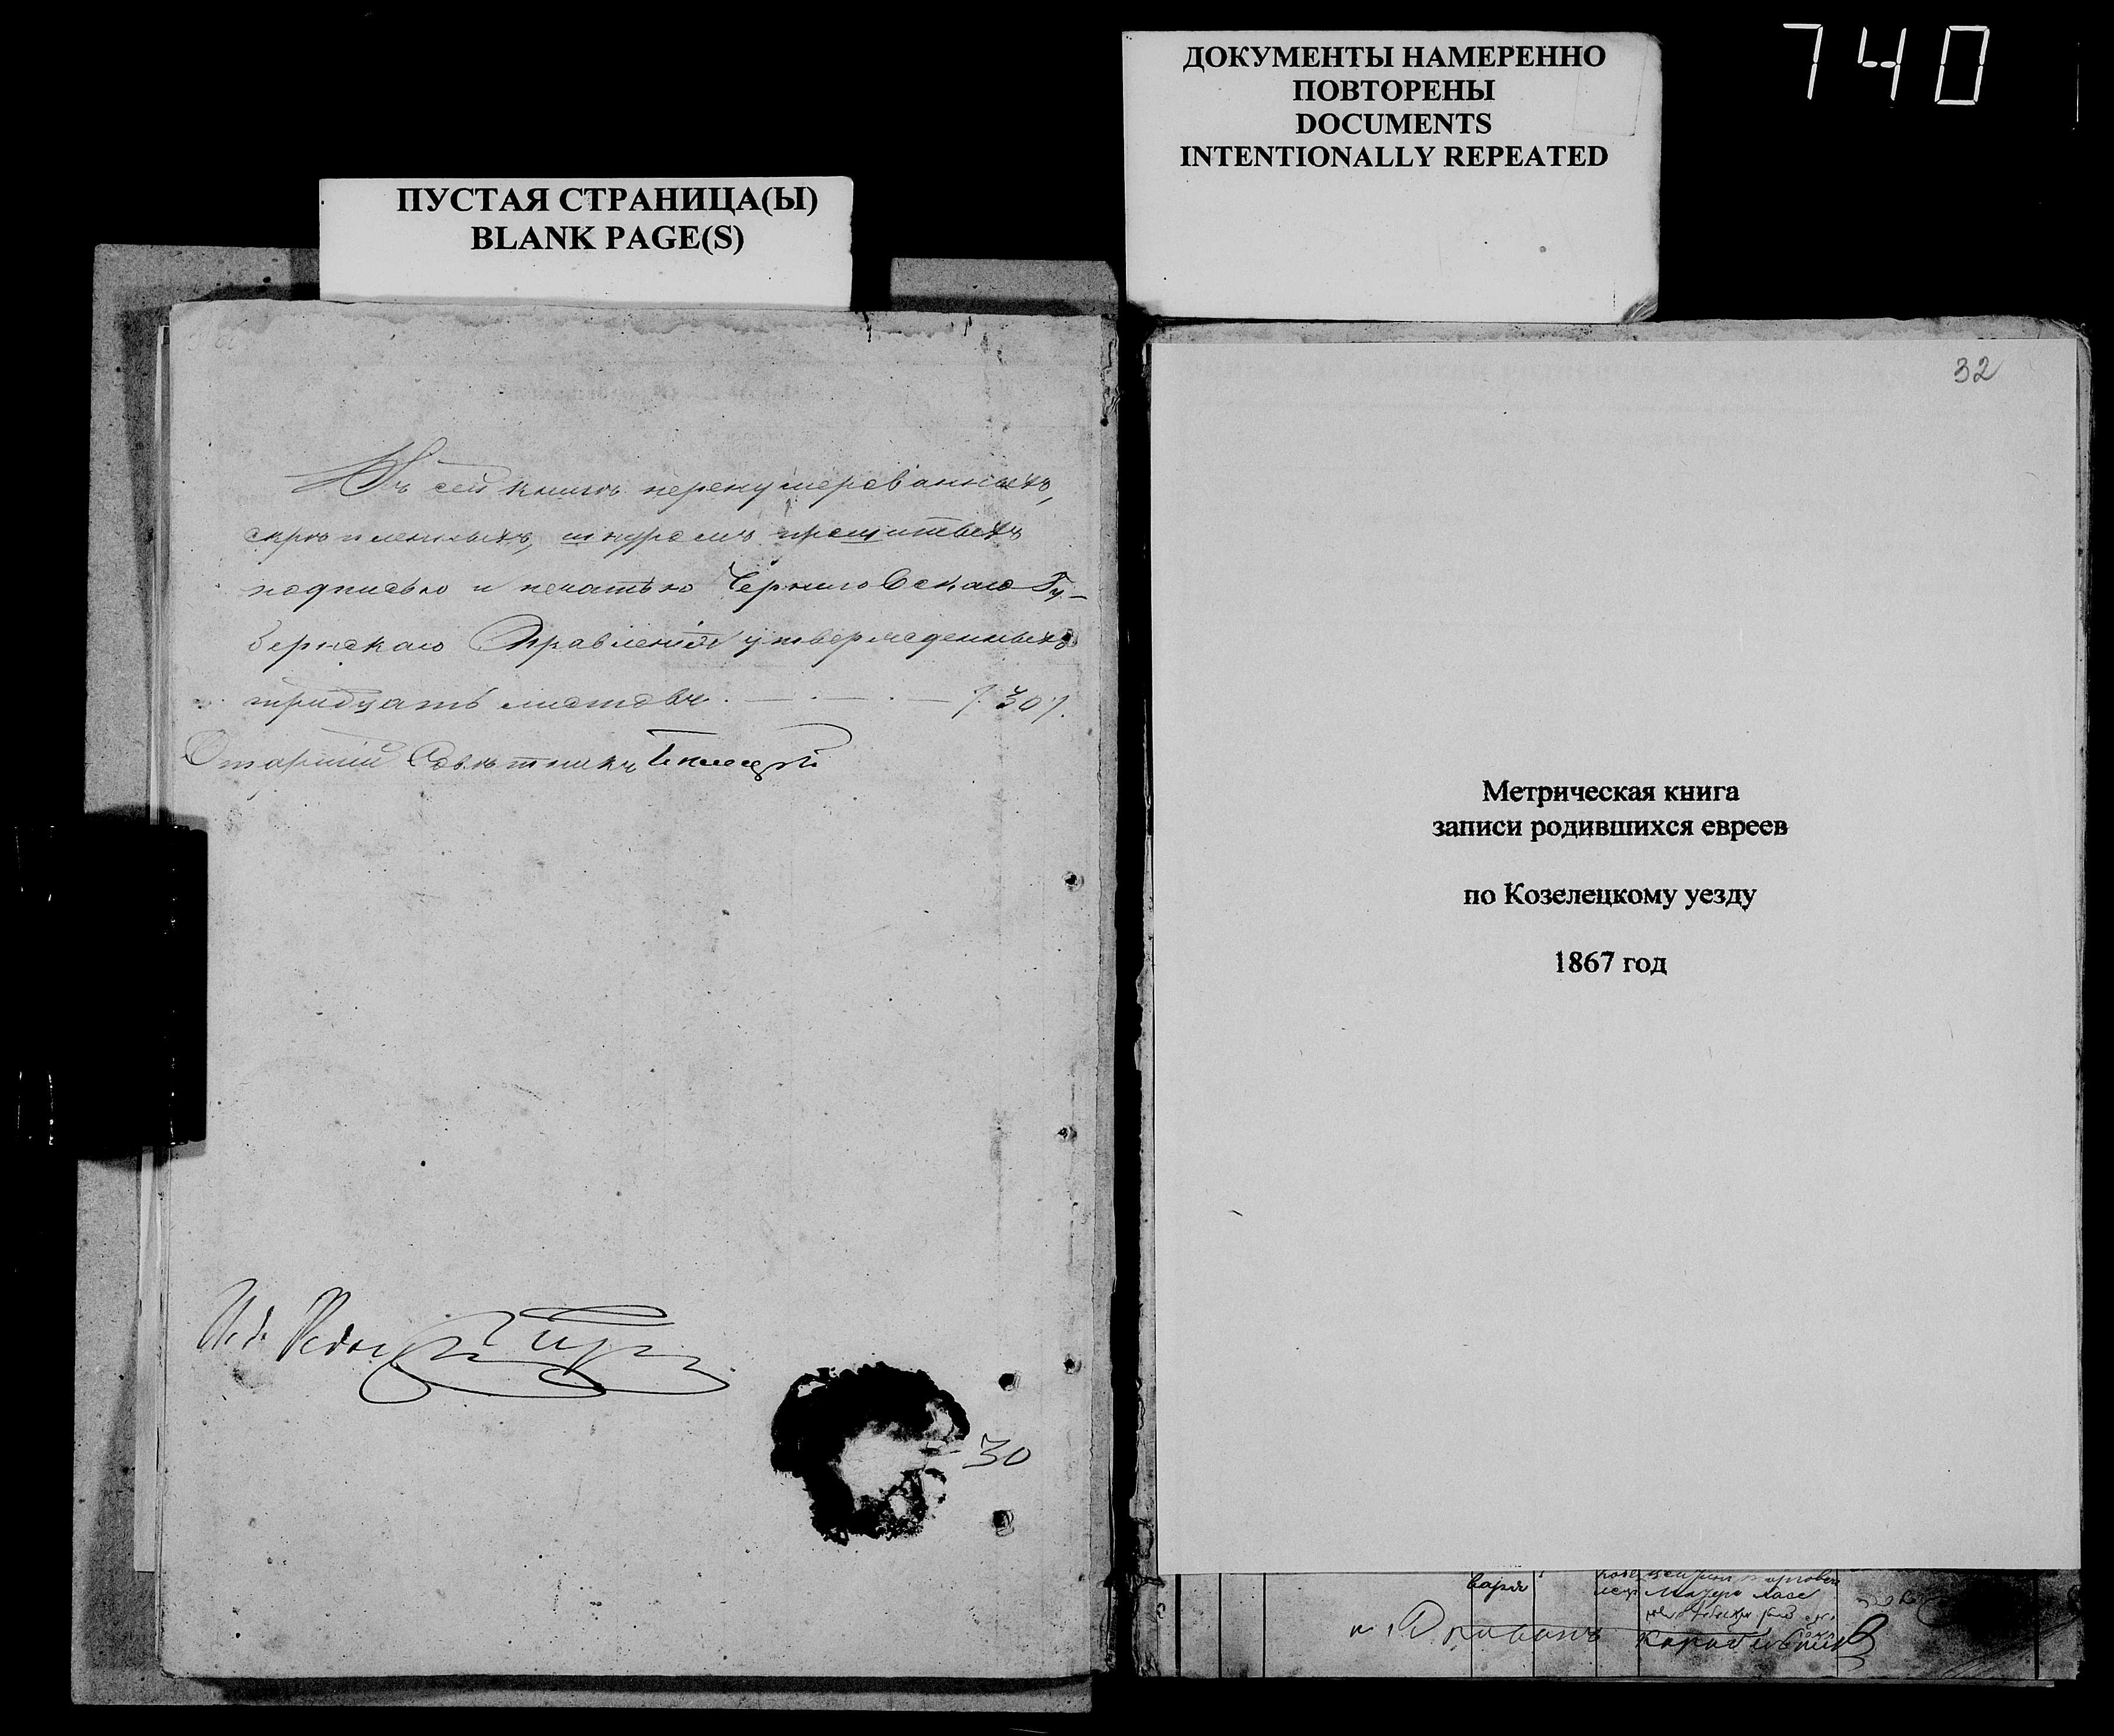 740
ДОКУМЕНТЫ НАМЕРЕННО
ПОВТОРЕНЫ
DOCUMENTS
INTENTIONALLY REPEATED
ПУСТАЯ СТРАНИЦА(Ы)
BLANK PAGE(S)
Въ сей книгѣ перенумерованныхъ,
скрѣпленныхъ, шнуромъ прошитыхъ
подписью и печатью Черниговскаго Гу-
бернскаго Правленія утвержденныхъ
тридцать листовъ. — . — . — /. 30 /.
Старшій Совѣтникъ
И. д.
30
32
Метрическая книга
записи родившихся евреев
по Козелецкому уезду
1867 год
варя